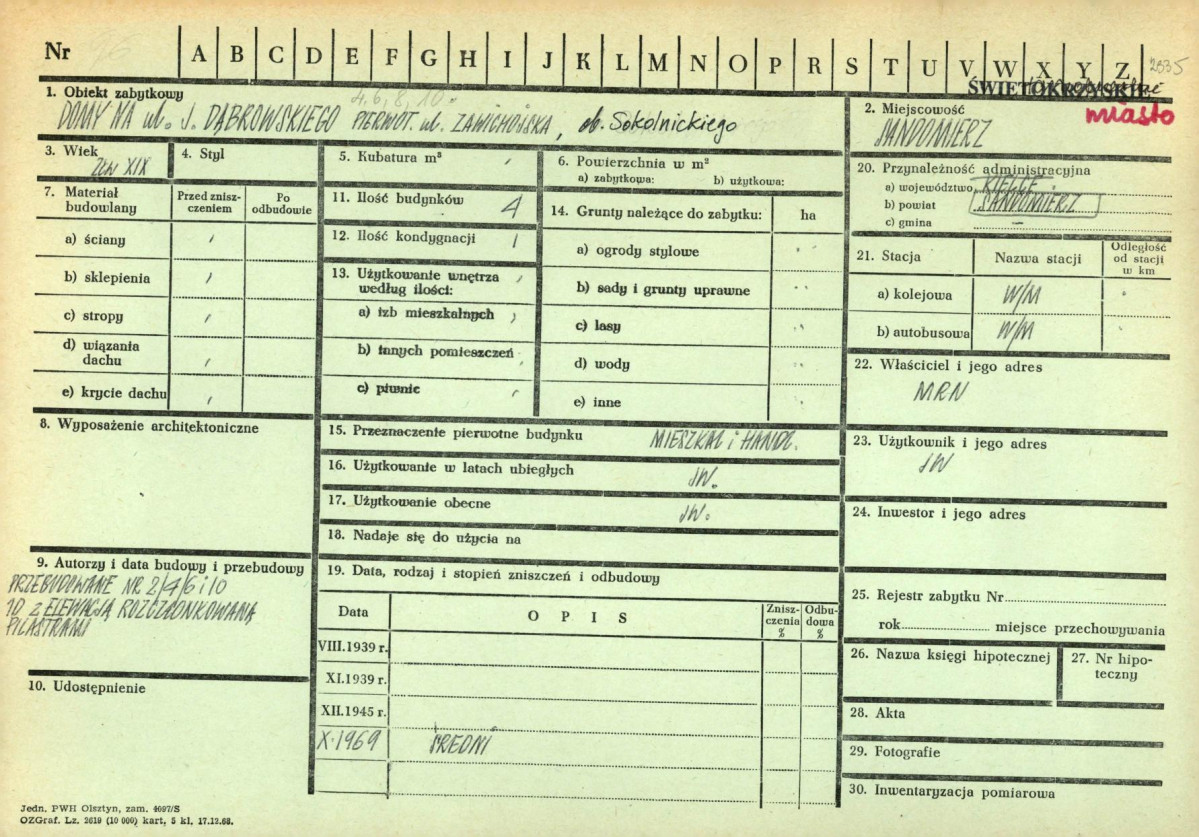 Nr 96 A B C D E F G H I J K L M N O P R S T U V W X Y Z 2535
ŚWIĘTOKRZYSKIE
miasto
1. Obiekt zabytkowy 4, 6, 8, 10
DOMY NA ul. J. DĄBROWSKIEGO PIERWOT. ul. ZAWICHOJSKA, ob. Sokolnickiego
2. Miejscowość
SANDOMIERZ
3. Wiek
XIX
4. Styl
5. Kubatura m³
6. Powierzchnia w m²
a) zabytkowa: b) użytkowa:
20. Przynależność administracyjna
a) województwo KIELCE
b) powiat SANDOMIERZ
c) gmina –
7. Materiał budowlany
Przed znisz-
czeniem
Po
odbudowie
a) ściany
b) sklepienia
c) stropy
d) wiązania
dachu
e) krycie dachu
11. Ilość budynków 4
12. Ilość kondygnacji 1
13. Użytkowanie wnętrza
według ilości:
a) izb mieszkalnych
b) innych pomieszczeń
c) piwnic
14. Grunty należące do zabytku: ha
a) ogrody stylowe
b) sady i grunty uprawne
c) lasy
d) wody
e) inne
21. Stacja Nazwa stacji
Odległość
od stacji
w km
a) kolejowa W/M
b) autobusowa W/M
22. Właściciel i jego adres
MRN
8. Wyposażenie architektoniczne
15. Przeznaczenie pierwotne budynku MIESZKAL i HANDL.
16. Użytkowanie w latach ubiegłych JW.
17. Użytkowanie obecne JW.
18. Nadaje się do użycia na
23. Użytkownik i jego adres
JW
24. Inwestor i jego adres
9. Autorzy i data budowy i przebudowy
PRZEBUDOWANE NR 2/4/6 i 10
10 Z ELEWACJĄ ROZCZŁONKOWANĄ
PILASTRAMI
10. Udostępnienie
19. Data, rodzaj i stopień zniszczeń i odbudowy
Data O P I S
Znisz-
czenia
%
Odbu-
dowa
%
VIII.1939 r.
XI.1939 r.
XII.1945 r.
X.1969 ŚREDNI
25. Rejestr zabytku Nr
rok miejsce przechowywania
26. Nazwa księgi hipotecznej
27. Nr hipo-
teczny
28. Akta
29. Fotografie
30. Inwentaryzacja pomiarowa
Jedn. PWH Olsztyn, zam. 4097/S
OZGraf. Lz. 2619 (10 000) kart, 5 kl. 17.12.68.